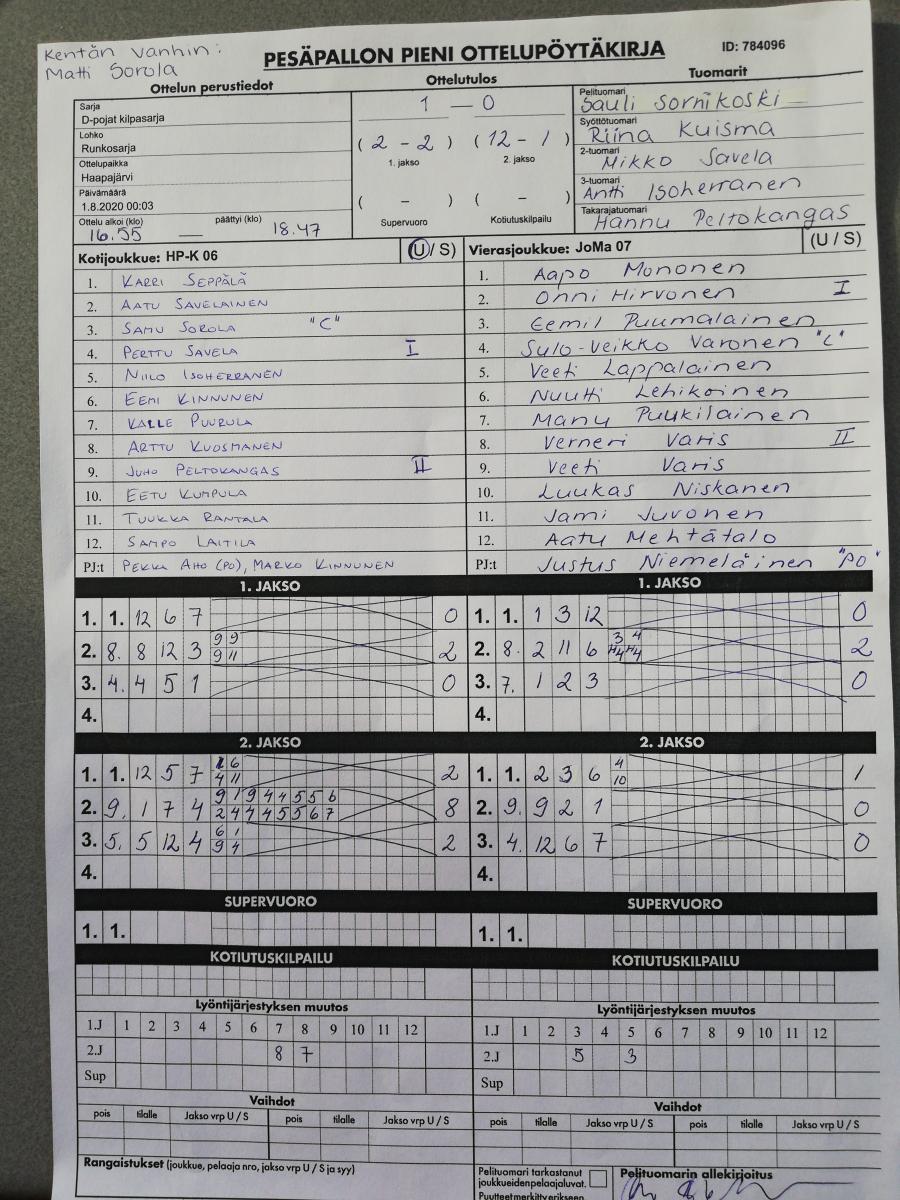 Kentän vanhin:
Matti Sorola
PESÄPALLON PIENI OTTELUPÖYTÄKIRJA
ID: 784096
Ottelun perustiedot
Ottelutulos
Tuomarit
Sarja
D-pojat kilpasarja
Lohko
Runkosarja
Ottelupaikka
Haapajärvi
Päivämäärä
1.8.2020 00:03
Ottelu alkoi (klo) päättyi (klo)
16.55 18.47
1 — 0
( 2 - 2 ) ( 12 - 1 )
1. jakso 2. jakso
( - ) ( - )
Supervuoro Kotiutuskilpailu
Pelituomari
Sauli Sornikoski
Syöttötuomari
Riina Kuisma
2-tuomari
Mikko Savela
3-tuomari
Antti Isoherranen
Takarajatuomari
Hannu Peltokangas
Kotijoukkue: HP-K 06 (U / S)
1. KARRI SEPPÄLÄ
2. AATU SAVELAINEN
3. SAMU SOROLA "C"
4. PERTTU SAVELA I
5. NIILO ISOHERRANEN
6. EEMI KINNUNEN
7. KALLE PUURULA
8. ARTTU KUOSMANEN
9. JUHO PELTOKANGAS II
10. EETU KUMPULA
11. TUUKKA RANTALA
12. SAMPO LAITILA
PJ:t PEKKA AHO (PO), MARKO KINNUNEN
Vierasjoukkue: JoMa 07 (U / S)
1. Aapo Mononen
2. Onni Hirvonen I
3. Eemil Puumalainen
4. Sulo-Veikko Varonen "C"
5. Veeti Lappalainen
6. Nuutti Lehikoinen
7. Manu Puukilainen
8. Verneri Varis II
9. Veeti Varis
10. Luukas Niskanen
11. Jami Juvonen
12. Aatu Mehtätalo
PJ:t Justus Niemeläinen "PO"
1. JAKSO
1. 1. 12 6 7 0
2. 8. 8 12 3 2
9 9
9 11
3. 4. 4 5 1 0
4.
2. JAKSO
1. 1. 12 5 7 2
1 6
4 11
2. 9. 1 7 4 8
9 1 9 4 4 5 5 6
2 4 4 4 5 5 6 7
3. 5. 5 12 4 2
6 1
9 4
4.
SUPERVUORO
1. 1.
KOTIUTUSKILPAILU
Lyöntijärjestyksen muutos
1.J 1 2 3 4 5 6 7 8 9 10 11 12
2.J 8 7
Sup
Vaihdot
pois tilalle Jakso vrp U / S pois tilalle Jakso vrp U / S
Rangaistukset (joukkue, pelaaja nro, jakso vrp U / S ja syy)
1. JAKSO
1. 1. 1 3 12 0
2. 8. 2 11 6 2
3 4
3. 7. 1 2 3 0
4.
2. JAKSO
1. 1. 2 3 6 1
4
10
2. 9. 9 2 1 0
3. 4. 12 6 7 0
4.
SUPERVUORO
1. 1.
KOTIUTUSKILPAILU
Lyöntijärjestyksen muutos
1.J 1 2 3 4 5 6 7 8 9 10 11 12
2.J 5 3
Sup
Vaihdot
pois tilalle Jakso vrp U / S pois tilalle Jakso vrp U / S
Pelituomari tarkastanut
joukkueidenpelaajaluvat.
Puutteetmerkittyerikseen
Pelituomarin allekirjoitus